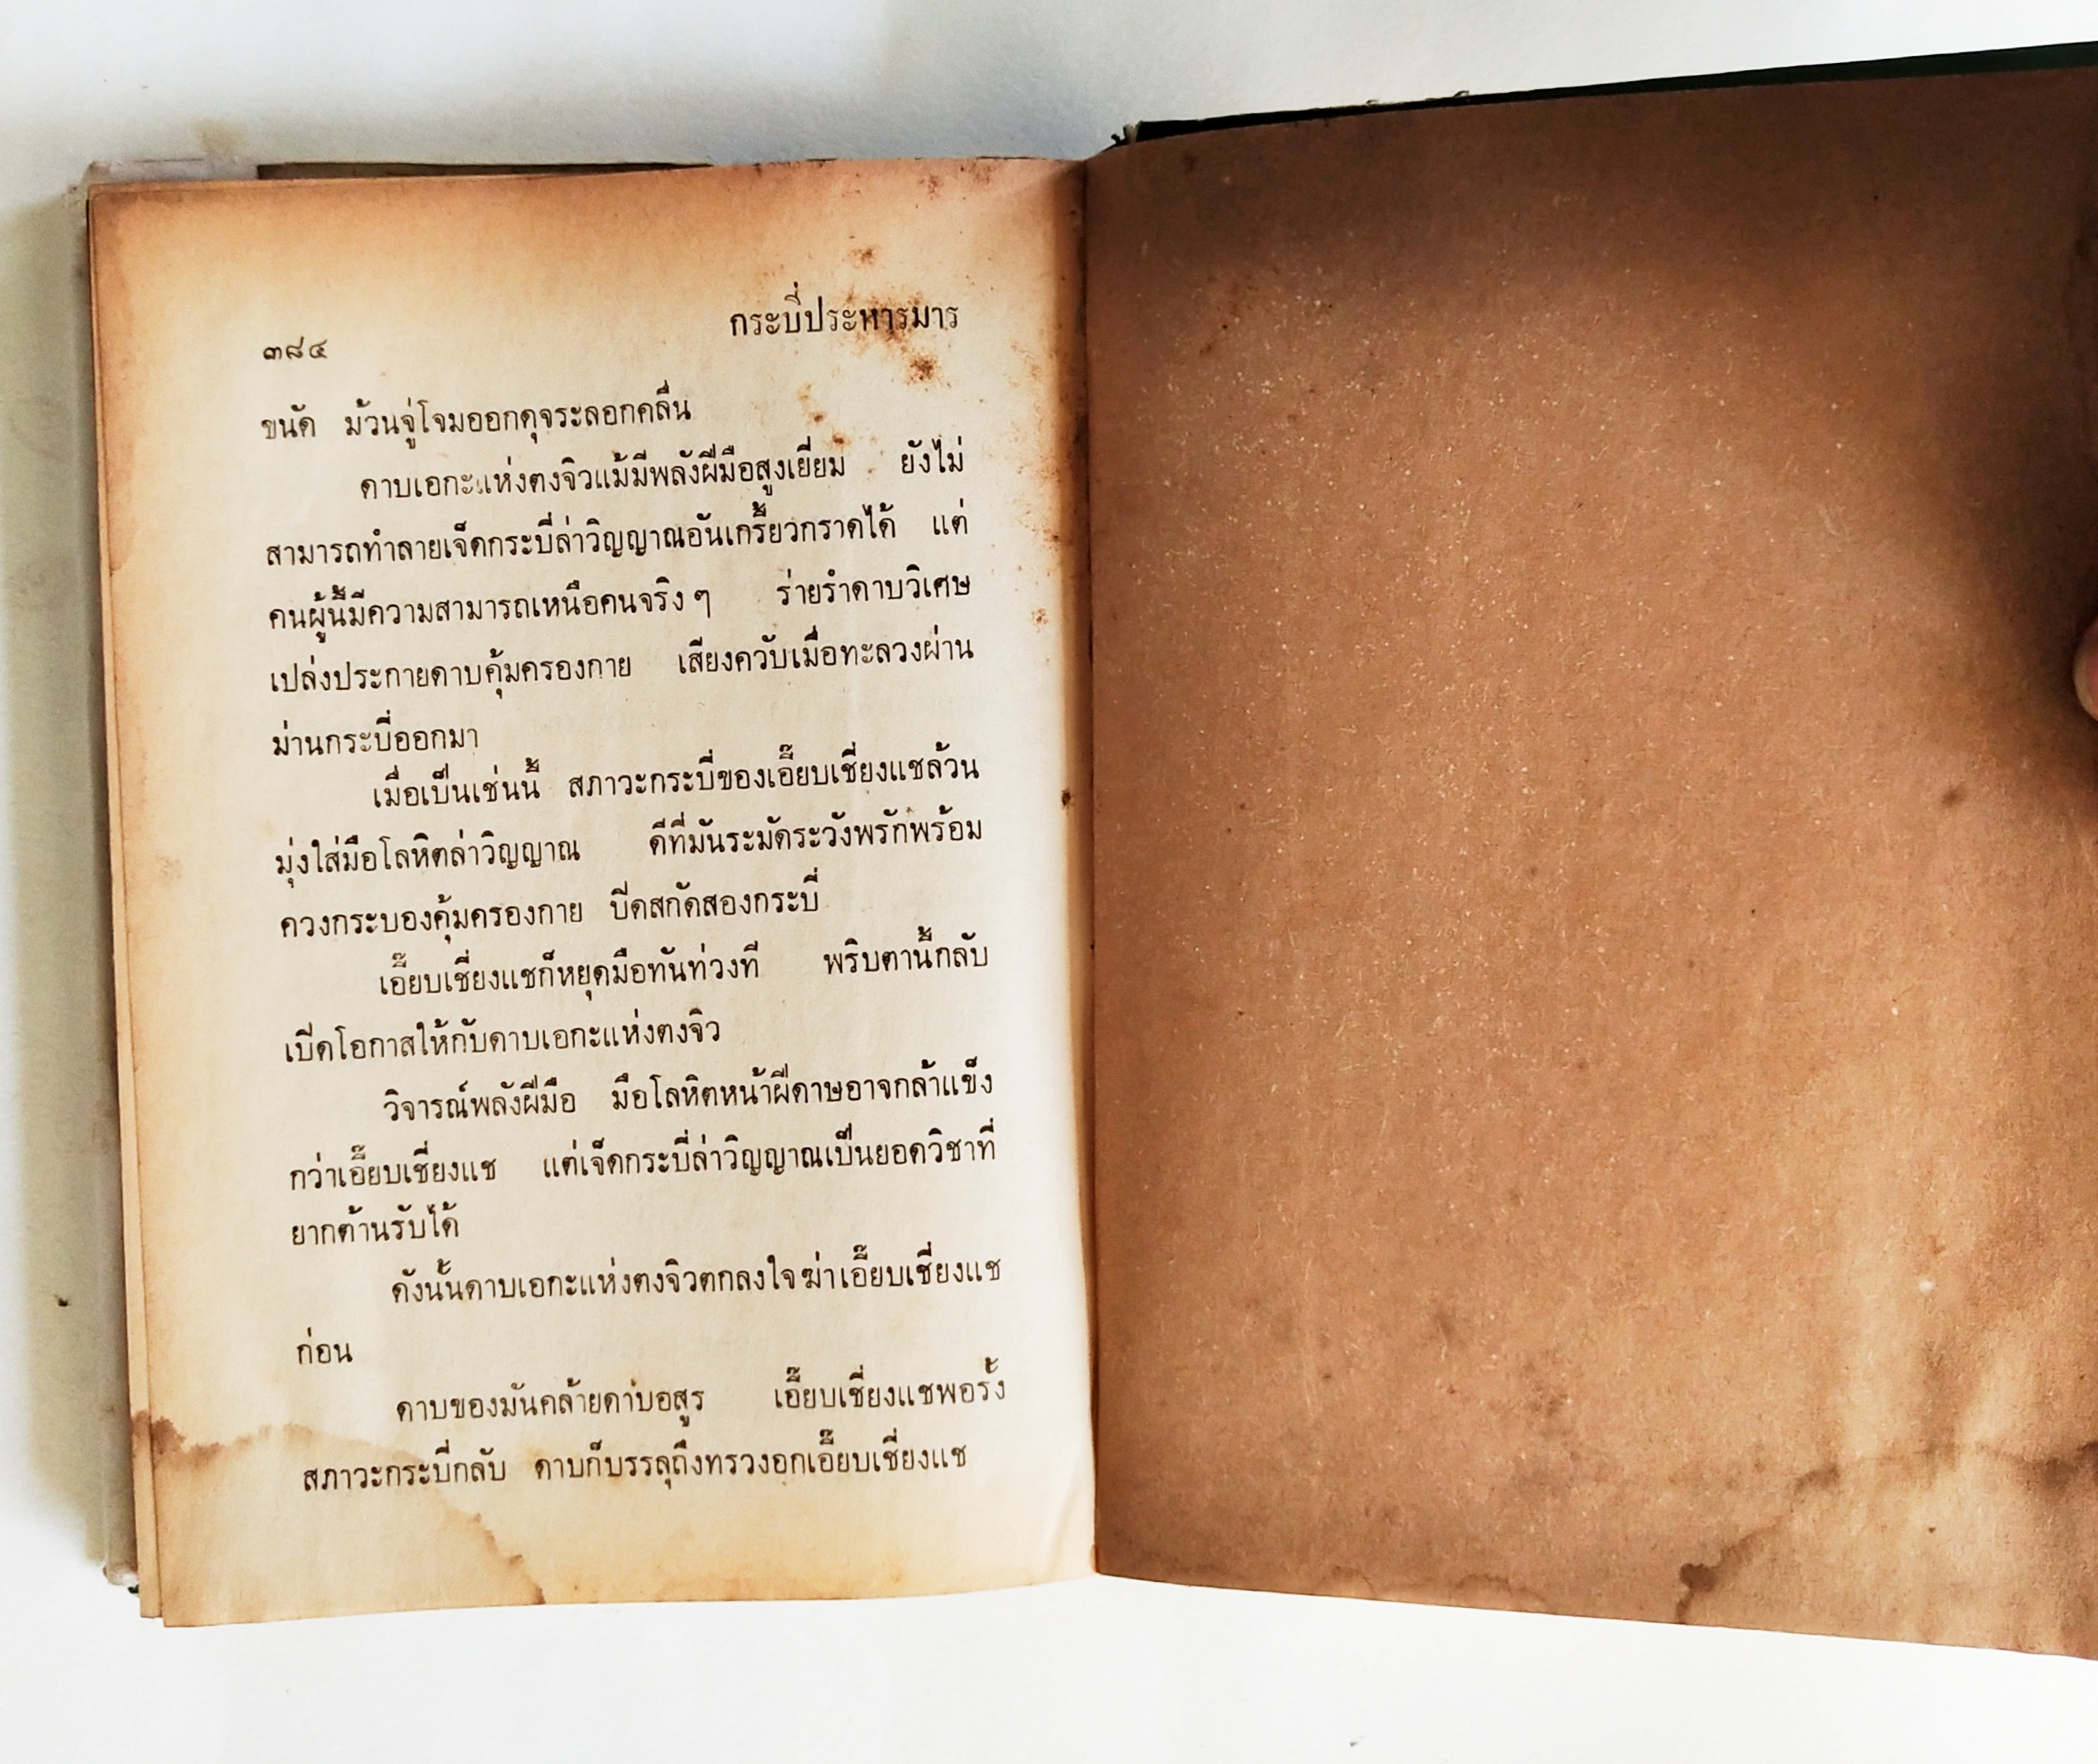 ๓๘๔
กระบี่ประหารมาร
ขนัด ม้วนจู่โจมออกดุจระลอกคลื่น
ดาบเอกะแห่งตงจิวแม้มีพลังฝีมือสูงเยี่ยม ยังไม่
สามารถทำลายเจ็ดกระบี่ล่าวิญญาณอันเกรี้ยวกราดได้ แต่
คนผู้นี้มีความสามารถเหนือคนจริงๆ ร่ายรำดาบวิเศษ
เปล่งประกายดาบคุ้มครองกาย เสียงควับเมื่อทะลวงผ่าน
ม่านกระบี่ออกมา
เมื่อเป็นเช่นนี้ สภาวะกระบี่ของเอี๊ยบเชี่ยงแชล้วน
มุ่งใส่มือโลหิตล่าวิญญาณ ดีที่มันระมัดระวังพรักพร้อม
ควงกระบองคุ้มครองกาย ปีดสกัดสองกระบี่
เอี๊ยบเชี่ยงแชก็หยุดมือทันท่วงที พริบตานี้กลับ
เปีดโอกาสให้กับดาบเอกะแห่งตงจิว
วิจารณ์พลังฝีมือ มือโลหิตหน้าฝีดาษอาจกล้าแข็ง
กว่าเอี๊ยบเชี่ยงแช แต่เจ็ดกระบี่ล่าวิญญาณเป็นยอดวิชาที่
ยากต้านรับได้
ดังนั้นดาบเอกะแห่งตงจิวตกลงใจฆ่าเอี๊ยบเชี่ยงแช
ก่อน
ดาบของมันคล้ายดาบอสูร เอี๊ยบเชี่ยงแชพอรั้ง
สภาวะกระบี่กลับ ดาบก็บรรลุถึงทรวงอกเอี๊ยบเชี่ยงแช